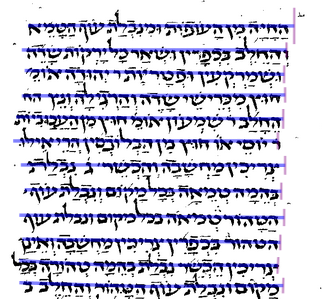 החיה מן העופות ומנבלת עוף הטמיא
והחלב בכפרים ושאר כל ירקות שדה
ושמרקעין ופטריות ר יהודה אומ
חוץ מכרישי שדה והרגילה ונץ הח
חלב ר שמעון אומ חוץ מן העכביות
ר יוסי או חוץ מן הבלוסין הרי אילו
צריכין מחשבה והכשר ג נבלת
בהמה טמיאה בכל מקום ונבלת עוף
הטהור טמיאה בכל מקום ונבלת עוף
הטהור בכפרין צריכין מחשבה ואינן
צריכין נבלת בהמה טהורה בכל
מקום ונבלת עוף הטהור והחלב ב